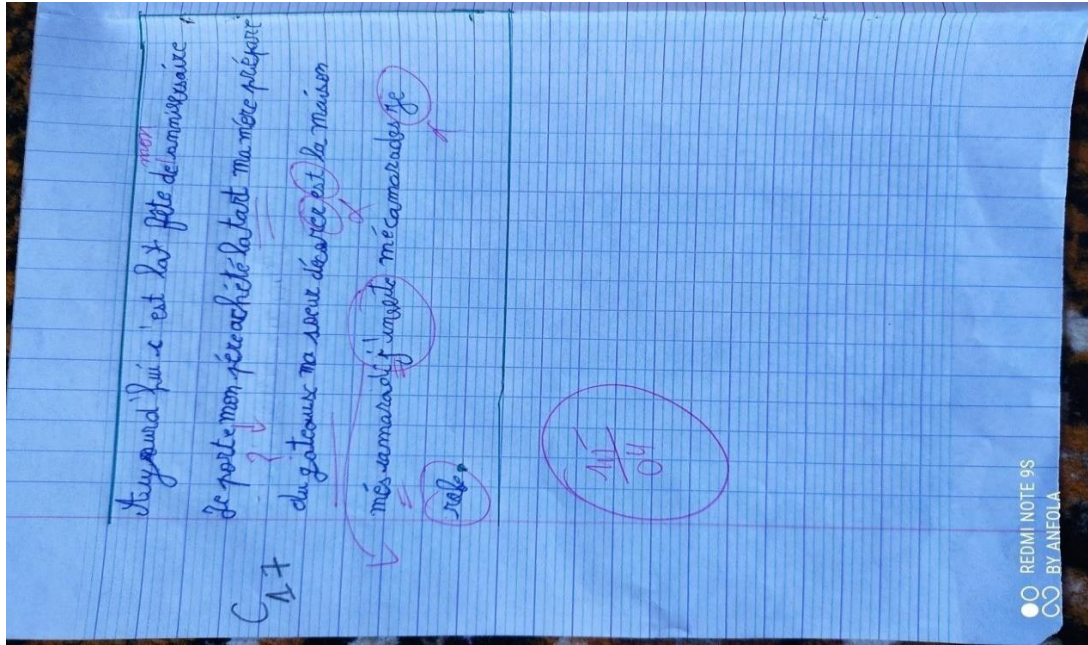 Aujourd'hui c'est la fête de mon anniversaire,
Je porte mon père achété la tart ma mère prépare
du gateaux ma soeur décorce est la maison
més camarad j'invite mécamarades je
robe.
C17
04
REDMI NOTE 9S
BY ANFOLA